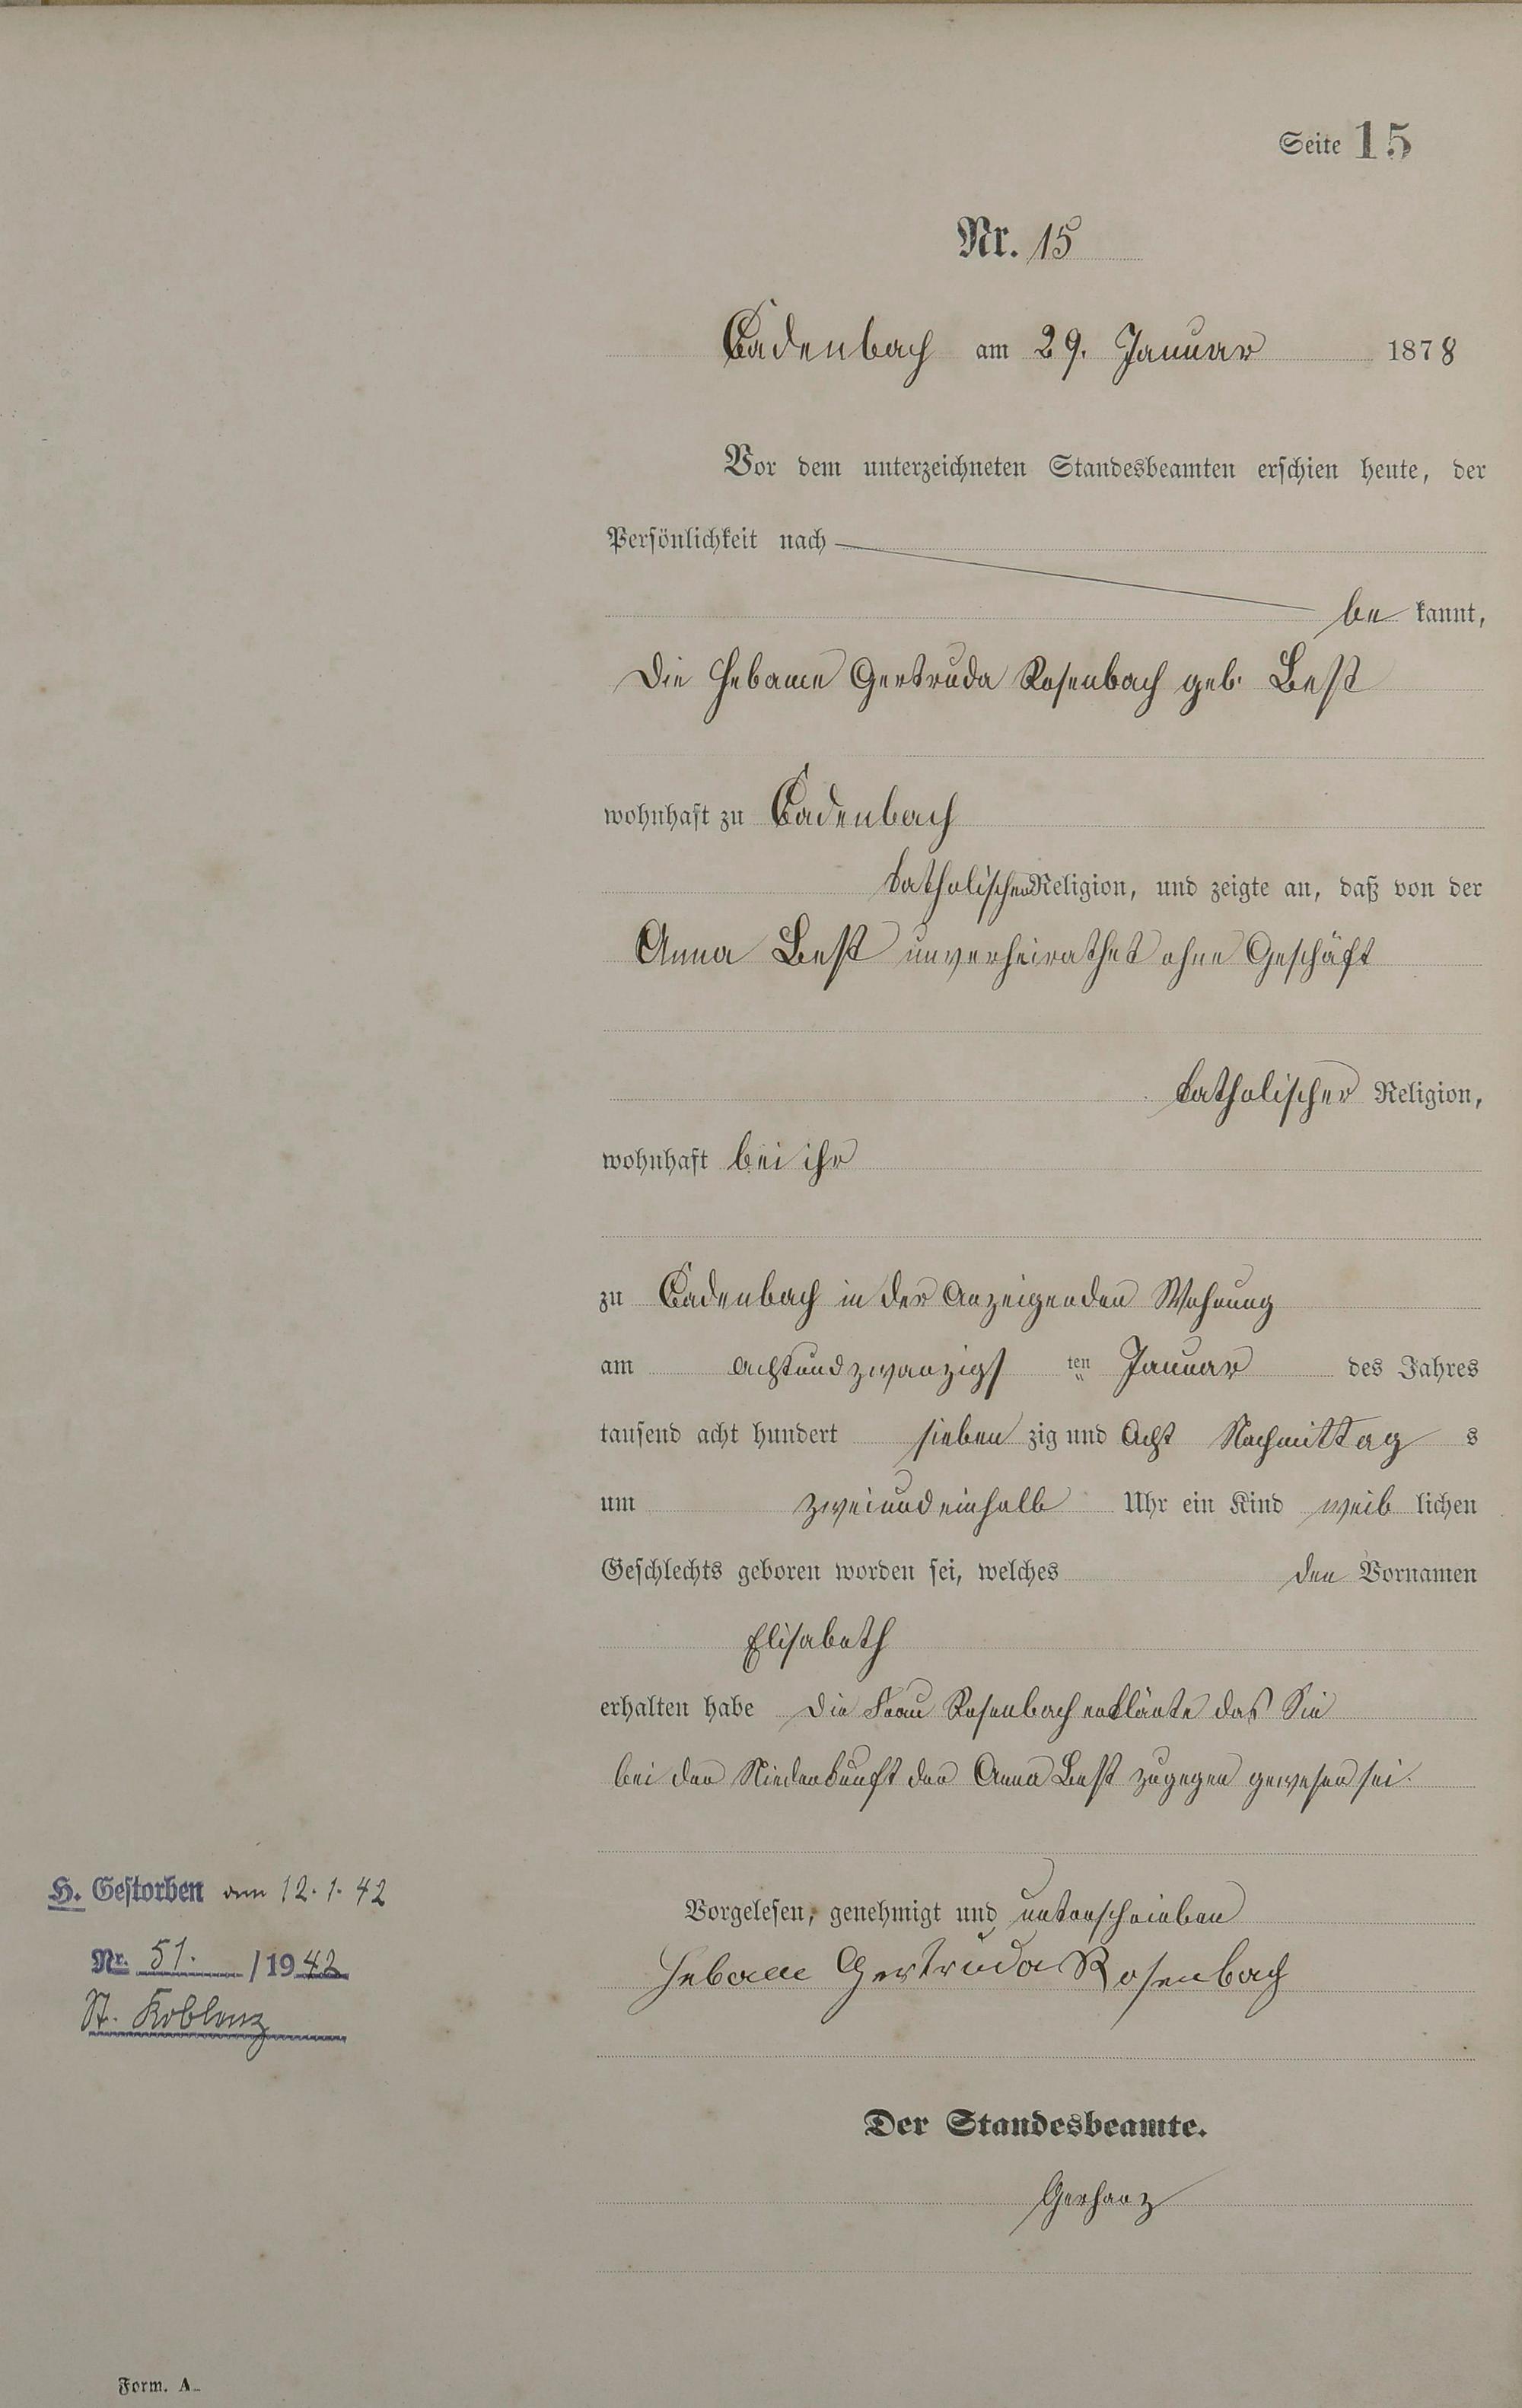 Seite 15
Nr. 15
Cadenbach am 29. Januar 1878
Vor dem unterzeichneten Standesbeamten erschien heute, der
Persönlichkeit nach
be kannt,
Die Hebame Gertruda Rosenbach geb. Best
wohnhaft zu Cadenbach
katholischer Religion, und zeigte an, daß von der
Anna Best unverheirathet ohne Geschäft
katholischer Religion,
wohnhaft bei ihr
zu Cadenbach in der Anzeigenden Wohnung
am achtundzwanzigs ten Januar des Jahres
tausend acht hundert sieben zig und Acht Nachmittag s
um zweiundeinhalb Uhr ein Kind weib lichen
Geschlechts geboren worden sei, welches den Vornamen
Elisabeth
erhalten habe Die Frau Rosenbach erklärte das Sie
bei der Niederkunft der Anna Best zugegen gewesen sei.
H. Gestorben am 12.1.42
Nr. 51. /1942
St. Koblenz
Vorgelesen, genehmigt und unterschrieben
Hebame Gertruda Rosenbach
Der Standesbeamte.
Gerharz
Form. A.